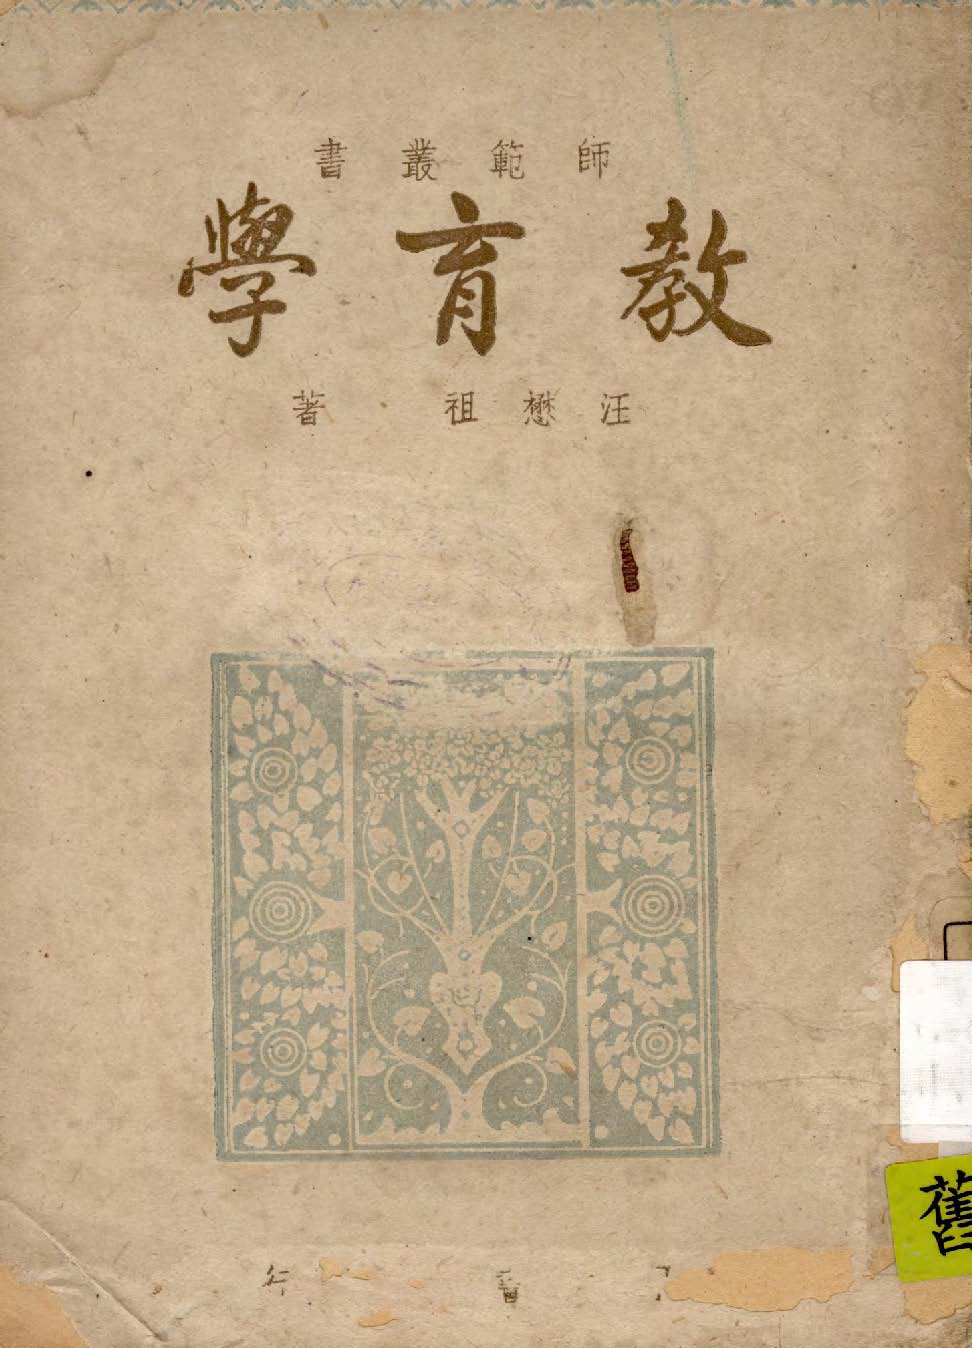 師範叢書
教育學
汪懋祖 著
舊